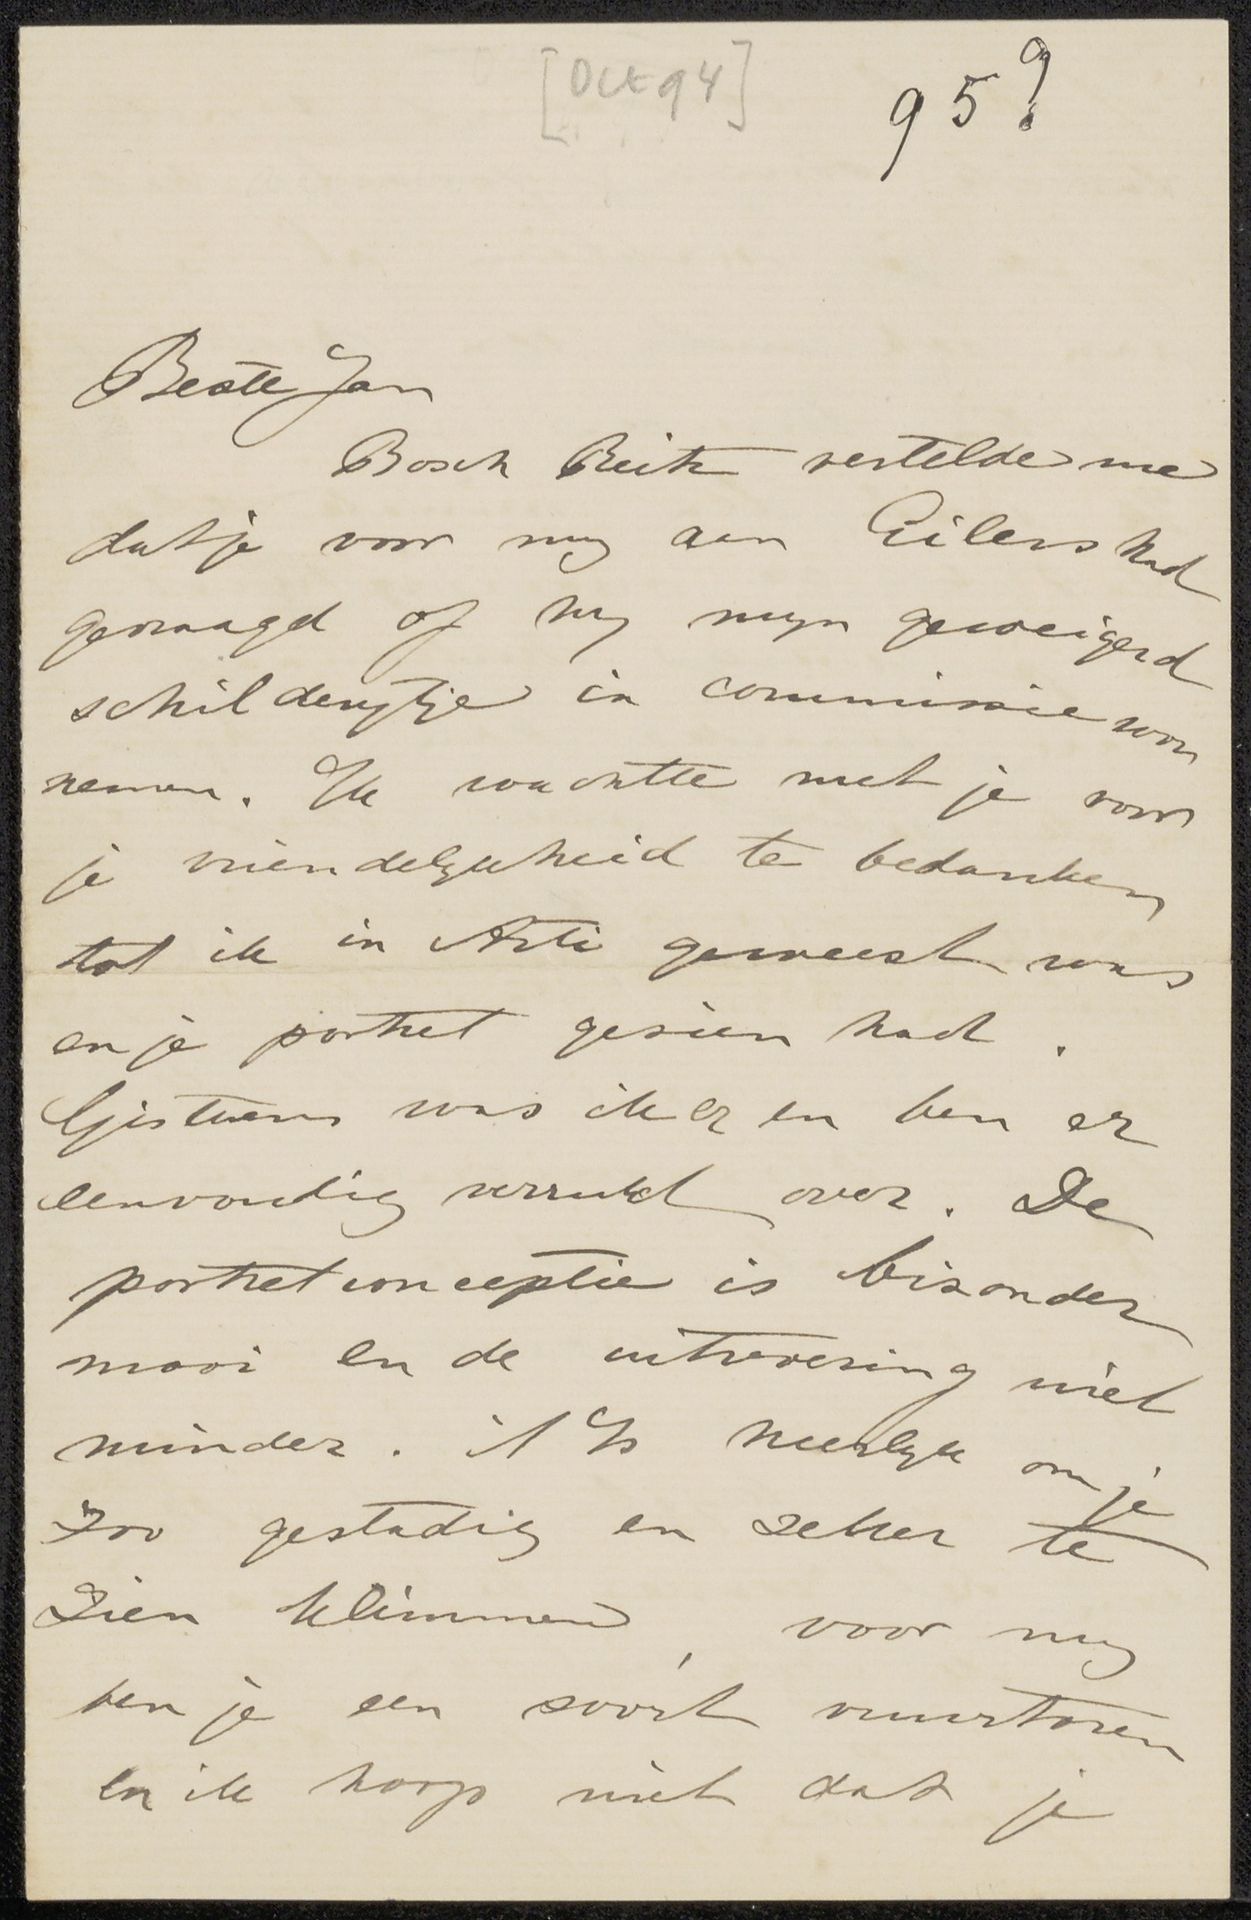 [Oct 94]
95?
Beste Jan
Bosch Reitz vertelde me
dat je voor my aan Eilers had
gevraagd of hy myn geweigerd
schilderytje in commissie wou
nemen. Ik wachtte met je voor
je vriendelykheid te bedanken
tot ik in Arti geweest was
en je portret gezien had.
Gisteren was ik er en ben er
eenvoudig verrukt over. De
portretconceptie is bizonder
mooi en de uitvoering niet
minder. 't Is heerlyk om je
zoo gestadig en zeker te
zien klimmen, voor my
ben je een soort vuurtoren
en ik hoop niet dat je